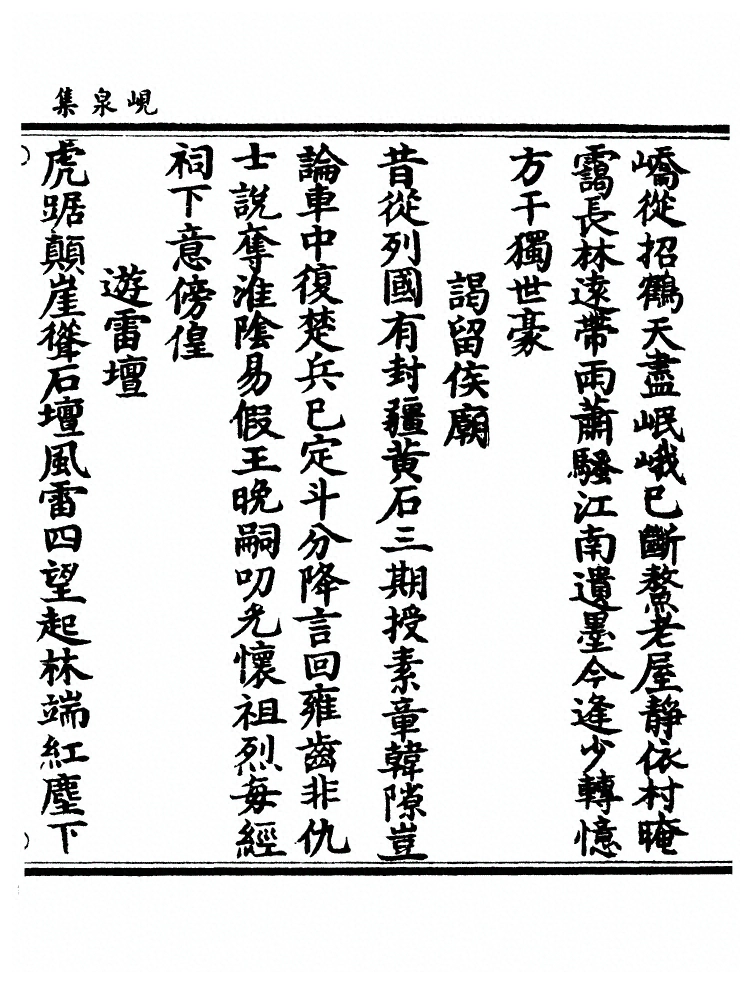 峴泉集
嶠從招鶴天盡岷峨已斷鰲老屋靜依村晻
靄長林遠帶雨蕭騷江南遺墨今逢少轉憶
方干獨世豪
謁留侯廟
昔從列國有封疆黃石三期授素章韓隙豈
論車中復楚兵已定斗分降言回雍齒非仇
士說奪淮陰易假王晚嗣叨光懷祖烈每經
祠下意傍偟
遊雷壇
虎踞顛崖聳石壇風雷四望起林端紅塵下